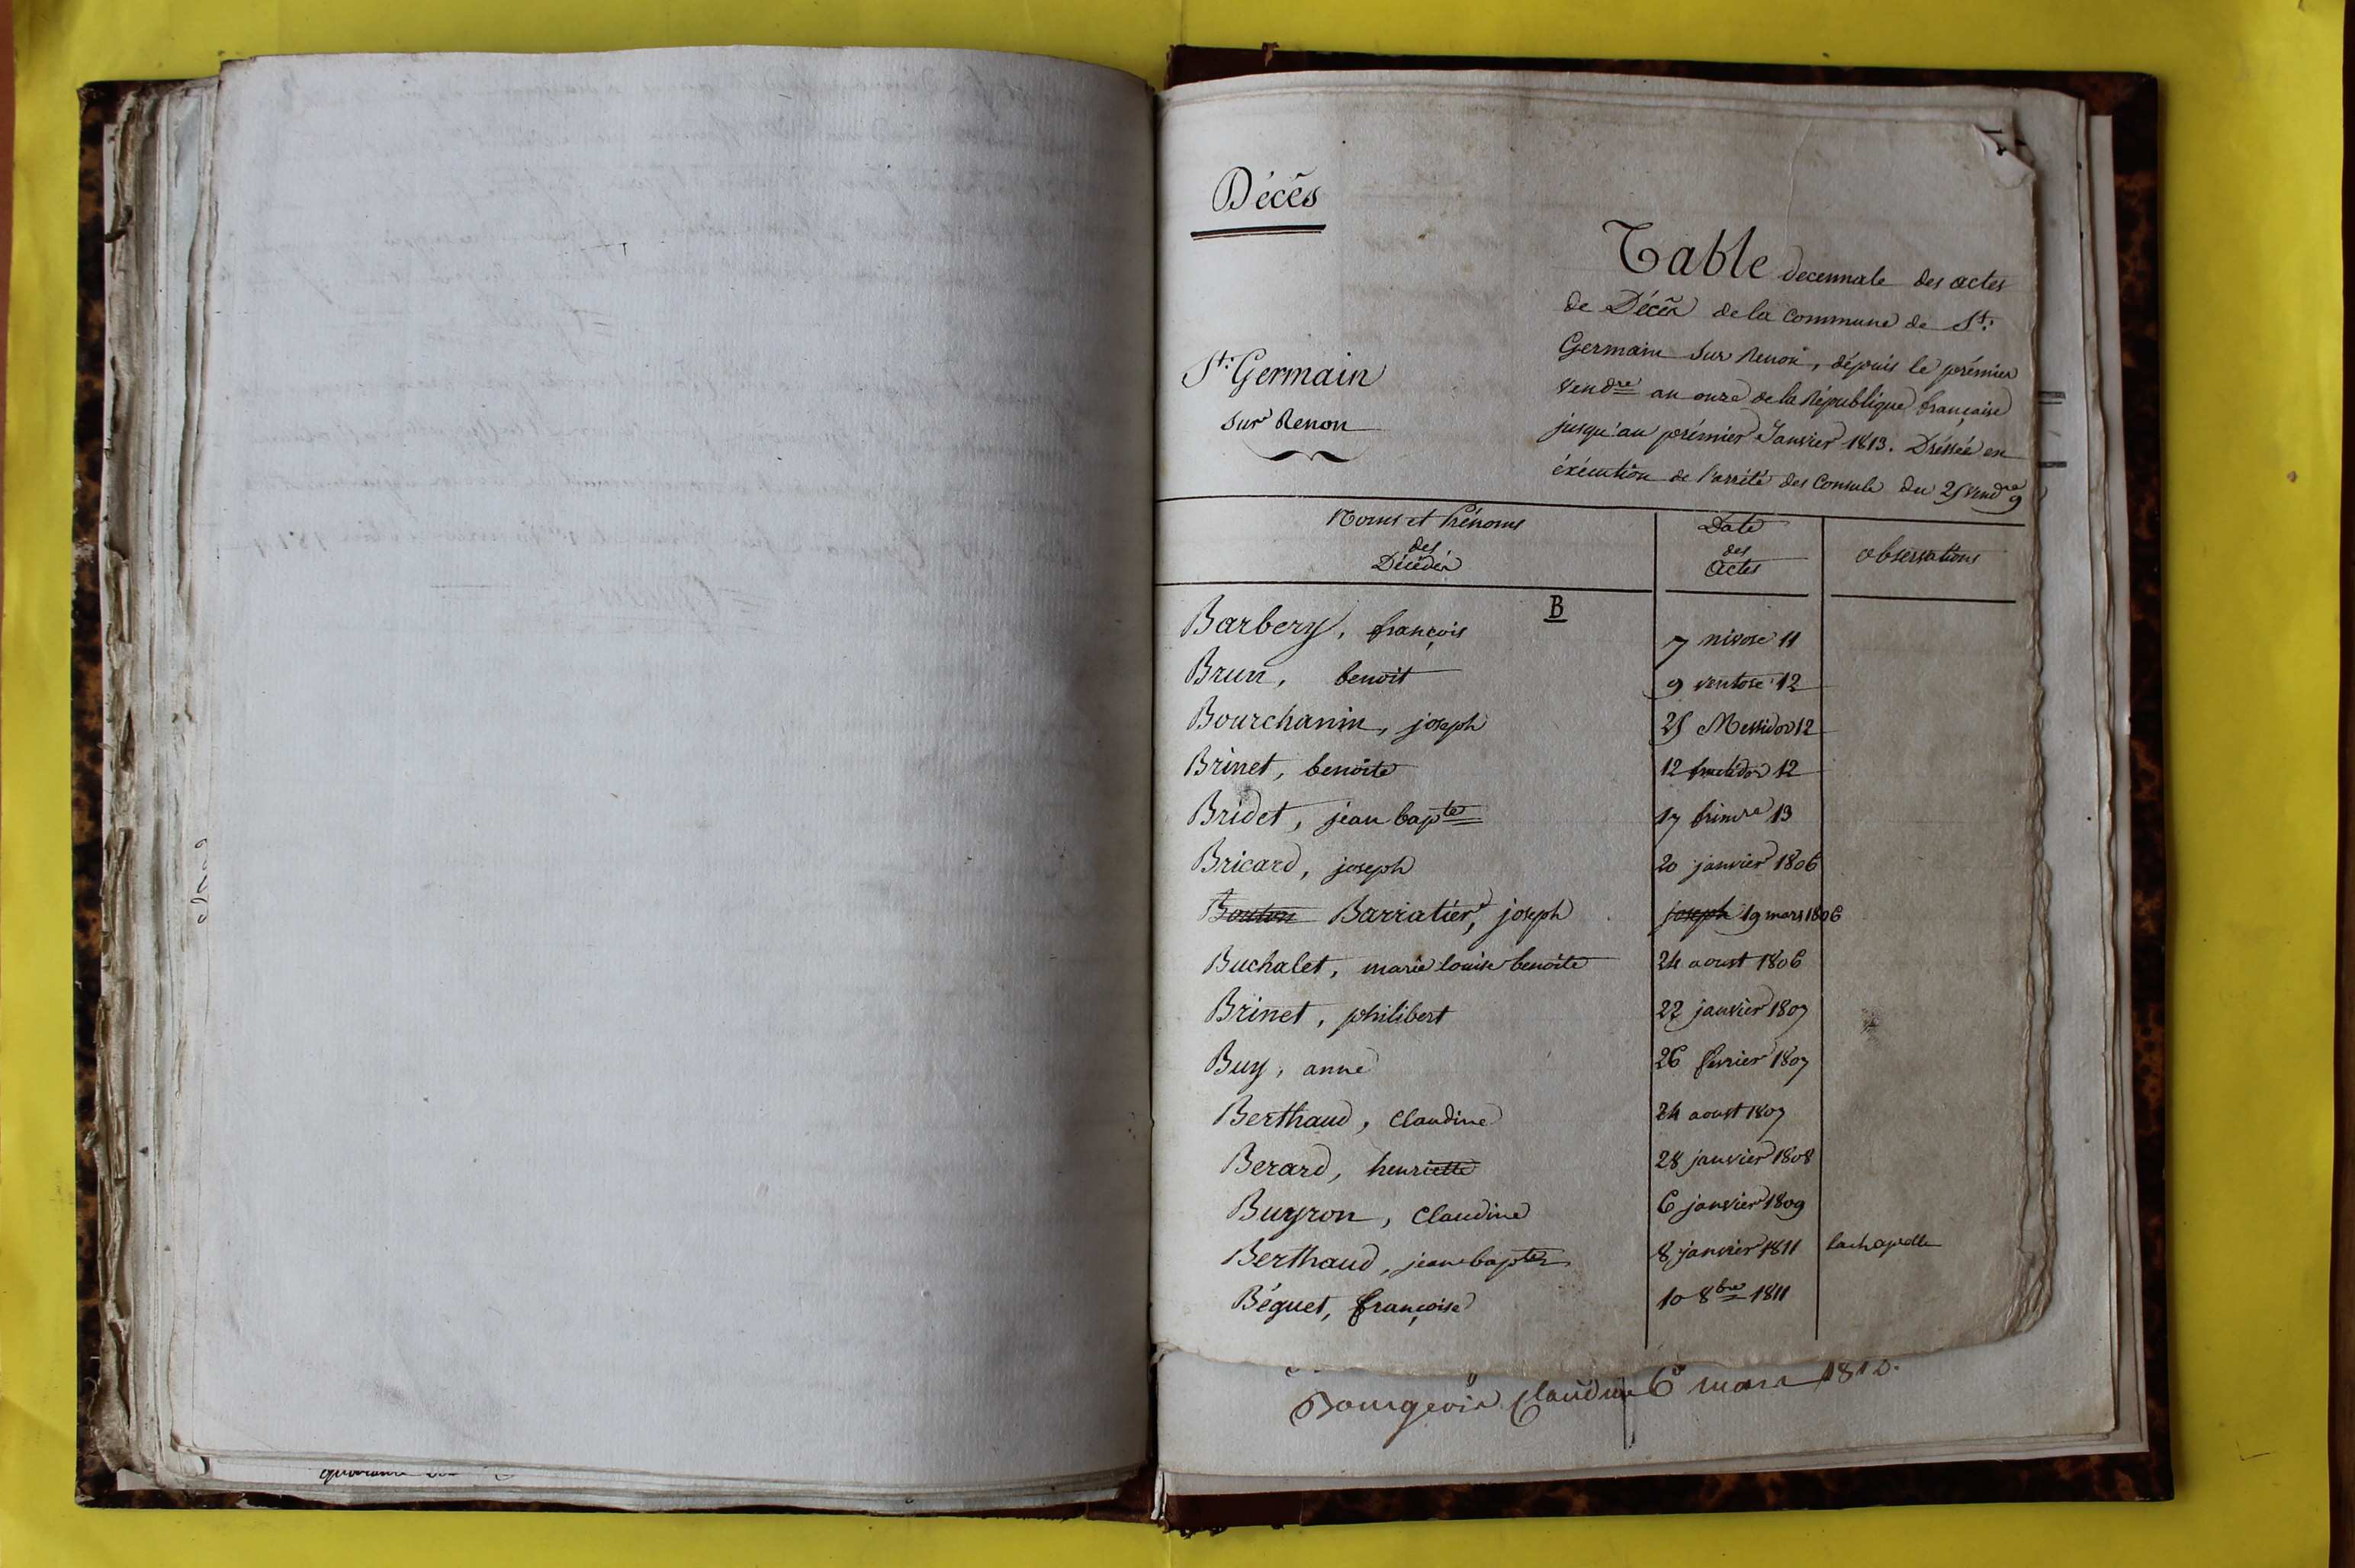 Décès
Table decennale des actes
de Décès de la Commune de St.
Germain Sur Renon, dépuis le prémier
vendre an onze de la République française
jusqu'au prémier Janvier 1813. Dréssée en
éxécution de l'arrété des Consuls du 25 vendre 9
St. Germain
Sur Renon
Noms et Prénoms
des
Décédés
Date
des
Actes
observations
B
Barbery, françois 7 nivose 11
Brun, benoit 9 ventose 12
Bourchanin, joseph 25 Messidor 12
Brinet, benoite 12 fructidor 12
Bridet, jean bapte 17 frimre 13
Bricard, joseph 20 janvier 1806
Bouton Barratier, joseph joseph 19 mars 1806
Buchalet, marie louise benoite 24 aoust 1806
Brinet, philibert 22 janvier 1807
Buy, anne 26 fevrier 1807
Berthaud, Claudine 24 aoust 1807
Berard, henriette 28 janvier 1808
Buyron, Claudine 6 janvier 1809
Berthaud, jean bapte 8 janvier 1811 lachapelle
Béguet, françoise 10 8bre 1811
Bourgeois Claudine 6 mars